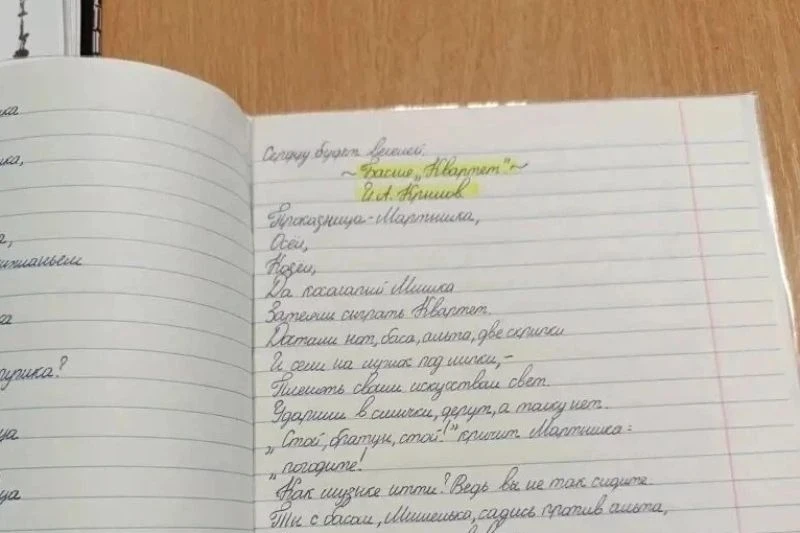 ка
ка,
а,
ипианьем
ка
зурика?
ца
ца
Сердцу будет веселей.
~ Басня „Квартет". ~
И.А. Крылов
Проказница-Мартышка,
Осёл,
Козёл,
Да косолапый Мишка
Затеяли сыграть Квартет.
Достали нот, баса, альта, две скрипки
И сели на лужок под липки,-
Пленять своим искусством свет.
Ударили в смычки, дерут, а толку нет.
„Стой, братцы, стой!" кричит Мартышка:
„погодите!
Как музыке итти? Ведь вы не так сидите
Ты с басом, Мишенька, садись против альта,